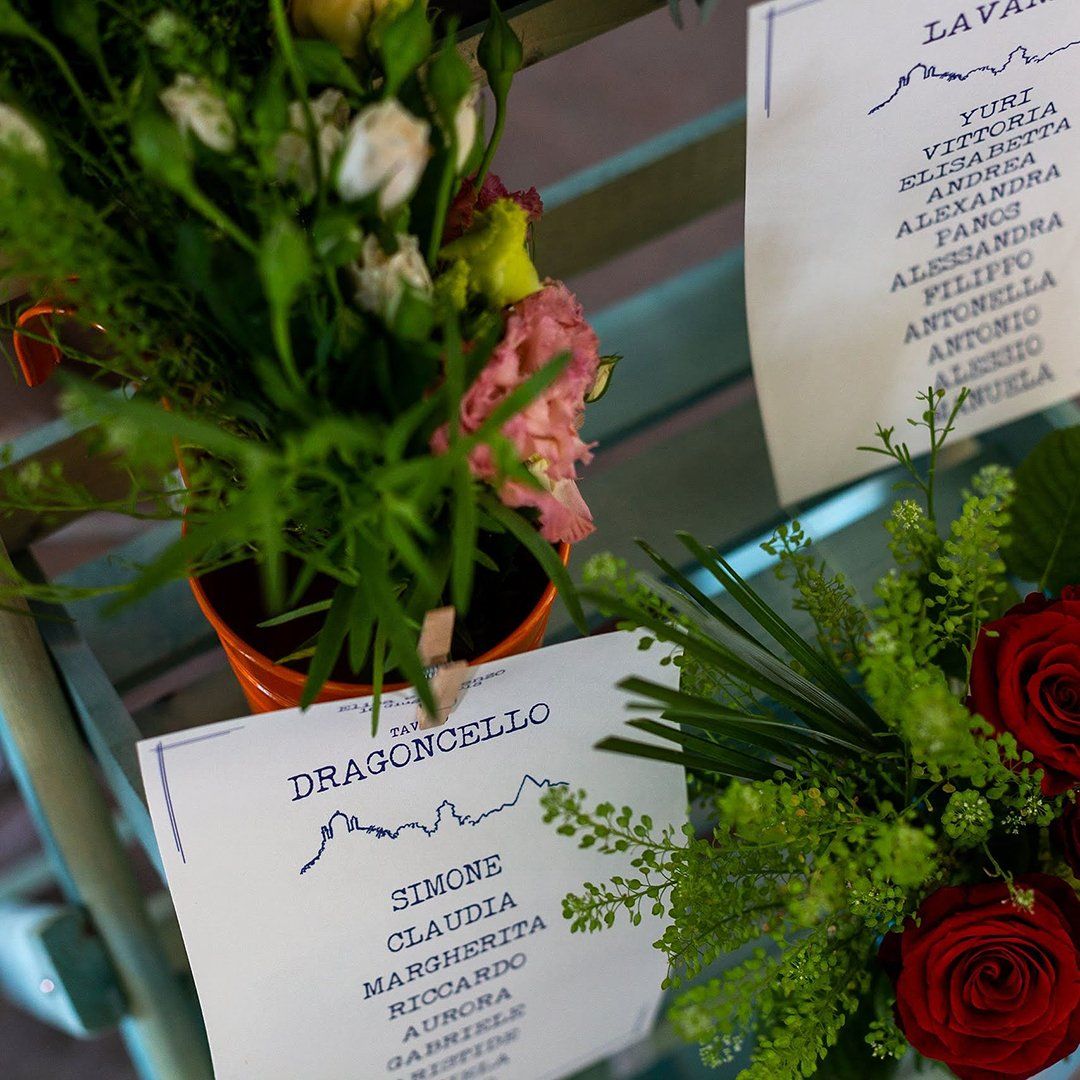 LAVAN
YURI
VITTORIA
ELISABETTA
ANDREA
ALEXANDRA
PANOS
ALESSANDRA
FILIPPO
ANTONELLA
ANTONIO
ALESSIO
MANUELA
TAV
DRAGONCELLO
SIMONE
CLAUDIA
MARGHERITA
RICCARDO
AURORA
GABRIELE